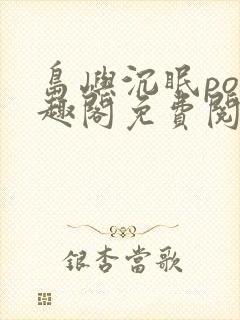 島嶼沉眠po
趣閣免費閱
銀杏當歌